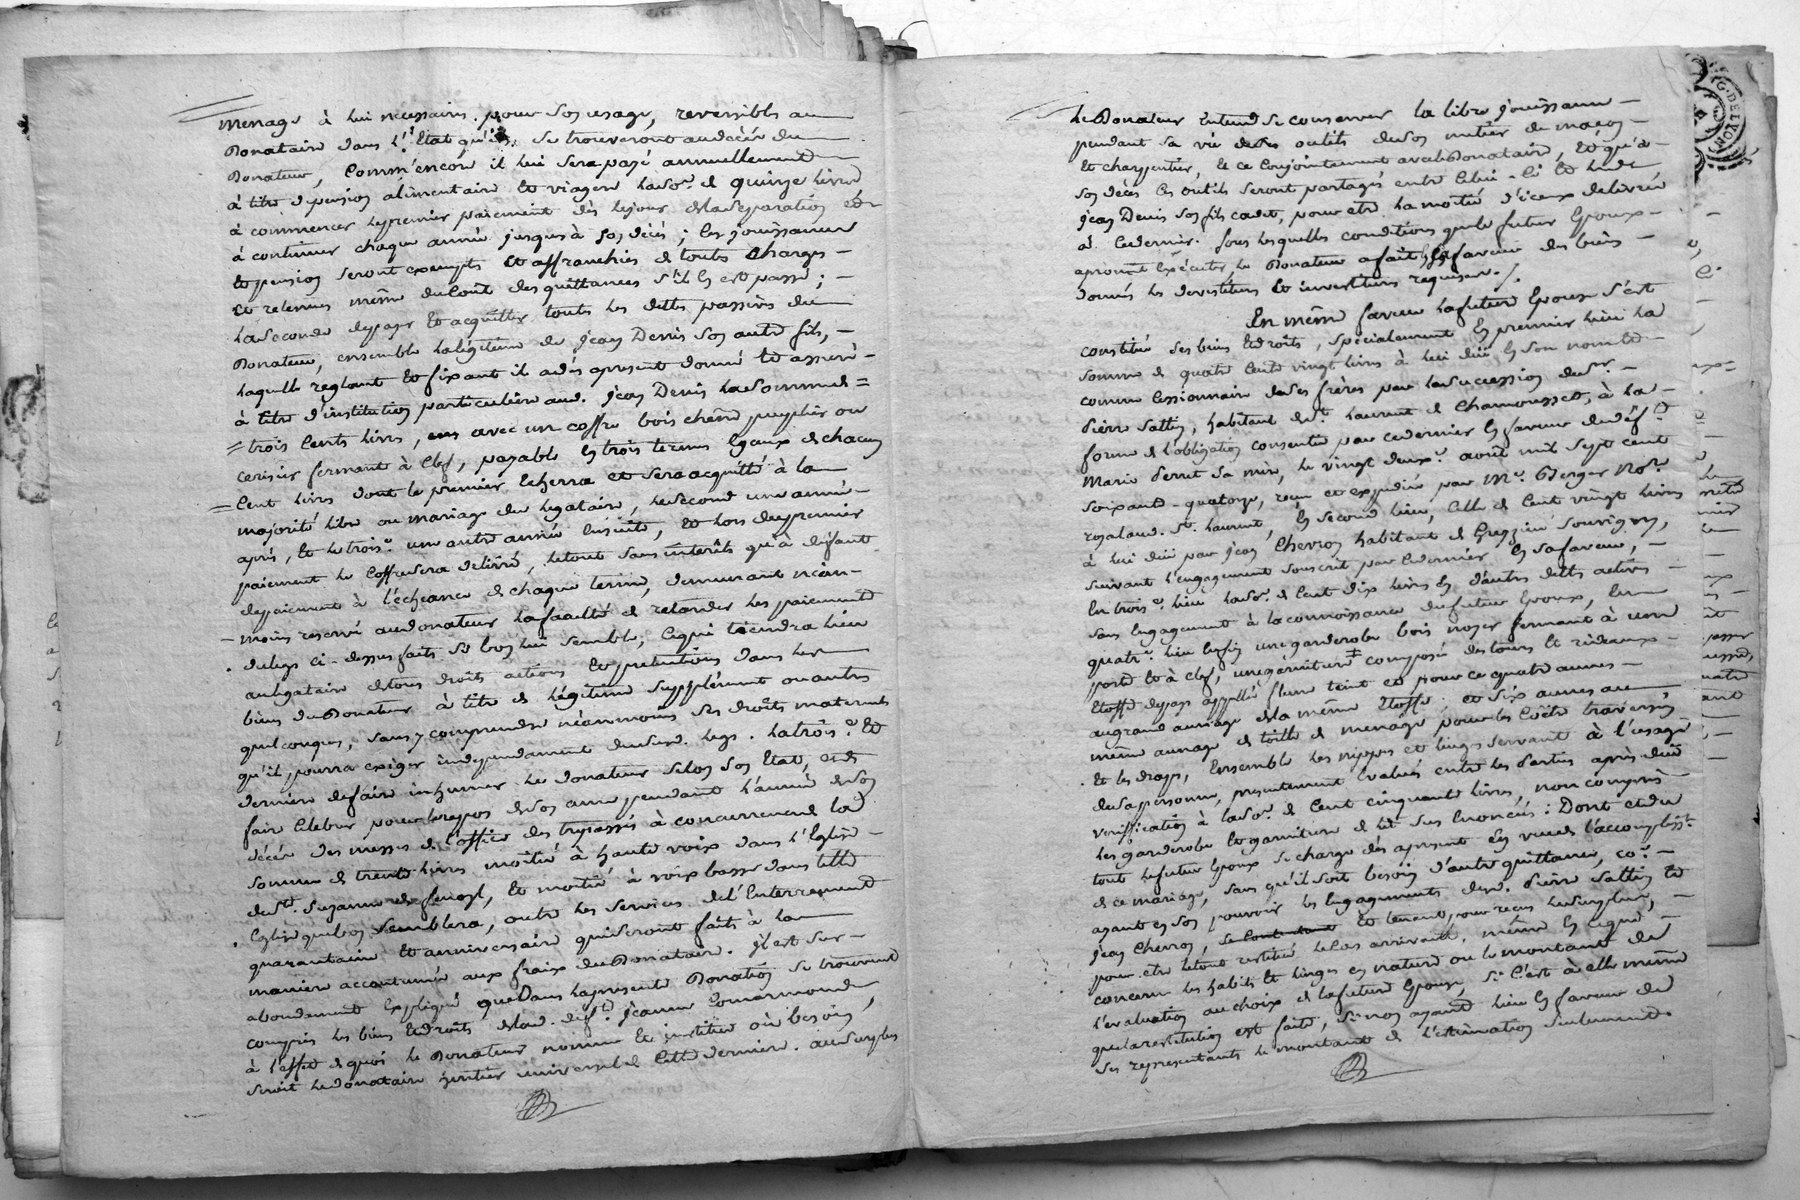 menage à lui necessaires pour son usage, reversibles au
Donataire dans l'Etat qu'ils se trouveront au décès du
Donateur, Comm'encore il lui sera payé annuellement
à titre de pension alimentaire et viagere la so.e de quinze livres
à commencer le premier paiement dès le jour de la separation et
à continuer chaque année jusques à son décès ; les jouissances
et pension seront exempts et affranchies de toutes charges
et retenues même du Coût des quittances s'il en est passé ;
la seconde de payer et acquitter toutes les dettes passives du
Donateur, ensemble la légitime de jean Denis son autre fils,
laquelle reglant et fixant il a dès apresent donné et assuré
à titre d'institution particuliere aud. jean Denis la somme de
trois Cents livres, avec un coffre bois chêne peuplier ou
cerisier fermant à clef, payable en trois termes egaux de chacun
Cent livres dont le premier Echerra et sera acquitté à la
majorité libre ou mariage du legataire, le second une année
après, et le trois.e une autre année ensuite, et lors du premier
paiement le Coffre sera delivré, le tout sans interêts qu'à défaut
de paiement à l'écheance de chaque terme, demeurant néan-
moins reservé au donateur la faculté de retarder les paiements
du legs ci-dessus fait si bon lui semble, ce qui tiendra lieu
au légataire de tous droits actions et pretentions dans les
biens du Donateur à titre de légitime supplément ou autres
quelconques, sans y comprendre néanmoins ses droits maternels
qu'il pourra exiger independament dud. legs. la trois.e et
derniere de faire inhumer le donateur selon son Etat, et de
faire Celebrer pour le repos de son ame pendant l'année de son
décès des messes de l'office des trepassés à concurrence de la
somme de trente livres moitié à haute voix dans l'Eglise
de S.te Suzanne de, et moitié à voix basse dans telle
Eglise que bon semblera, outre les services de l'Enterrement
quarantaine et anniversaire qui seront faits à la
maniere accoutumée aux fraix du Donataire. Il est sur-
abondement Expliqué que Dans la presente Donation se trouvent
compris les biens et droits de lad. def.te jeanne
à l'effet de quoi le Donateur nomme et institue où besoin
seroit le donataire heritier universel de cette derniere. au surplus
le Donateur Entend se conserver la libre jouissance
pendant sa vie de ses outils de son metier de maçon
et charpentier, et ce Conjointement avec le Donataire, et qu'à
son décès ces outils seront partagés entre celui-ci et led.
jean Denis son fils cadet, pour etre la moitié d'iceux delivrée
à ce dernier. sous lesquelles conditions que le futur Epoux
a promis Exécuter, le Donateur a fait en sa faveur des biens
donnés les devestitures et investitures requises./.
En même faveur la future Epouse s'est
constitué ses biens et droits, spécialement En premier lieu la
somme de quatre Cents vingt livres à lui düe En son nom et
comme Cessionnaire de ses frères par la succession de sr.
pierre Sattin, habitant de St. laurent de Chamousset, à la
forme de l'obligation consentie par ce dernier En faveur de def.te
Marie Perret sa mère, le vingt deux.e avril mil sept cent
soixante-quatorze, reçu et expediée par M.e Berger No.re
royal aud. St. laurent, En second lieu, celle de Cent vingt livres
à lui düe par jean Chevron habitant de Grezieu Souvigny,
suivant l'engagement souscrit par ce dernier En sa faveur,
En trois.e lieu la so.e de Cent dix livres En d'autres dettes actives
sans Engagement à la connoissance du futur Epoux, En
quatr.e lieu Enfin une garderobe bois noyer fermant à une
porte et à clef, une garniture composée des tours et rideaux
Etoffe de pays appellée fleur teint et pour ce quatre aunes
au grand aunage de la même Etoffe, et six aunes au
même aunage de toille de menage pour les Coëtre traversin
et les draps, Ensemble les nippes et linges servant à l'usage
de sa personne, presentement Evalués entre les Parties après düe
verification à la so.e de Cent cinquante livres, non compris
les garderobe et garniture de lit sus Enoncés : Dont et du
tout le futur Epoux se charge dès apresent En vue de l'accompliss.t
de ce mariage, sans qu'il soit besoin d'autre quittance, co.e
ayant en son pouvoir les Engagements desd. pierre Sattin et
jean Chevron, et tenant pour reçus le surplus,
pour etre le tout restitué le cas arrivant, même En ce qui
concerne les habits et linges en nature ou le montant de
l'evaluation au choix de la future Epouse, si C'est à elle même
que la restitution est faite, si non ayant lieu En faveur de
ses representants le montant de l'estimation seulement.